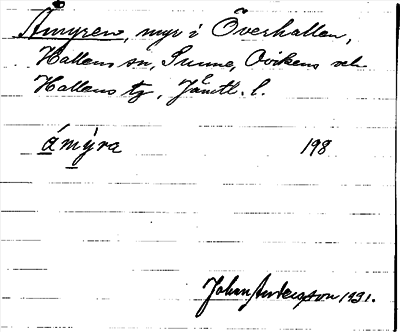 Åmyren, myr i Överhallen,
Hallens sn, Sunne, Ovikens och
Hallens tg, Jämtl. l.
åmýra 198
Johan Anderzon 1931.